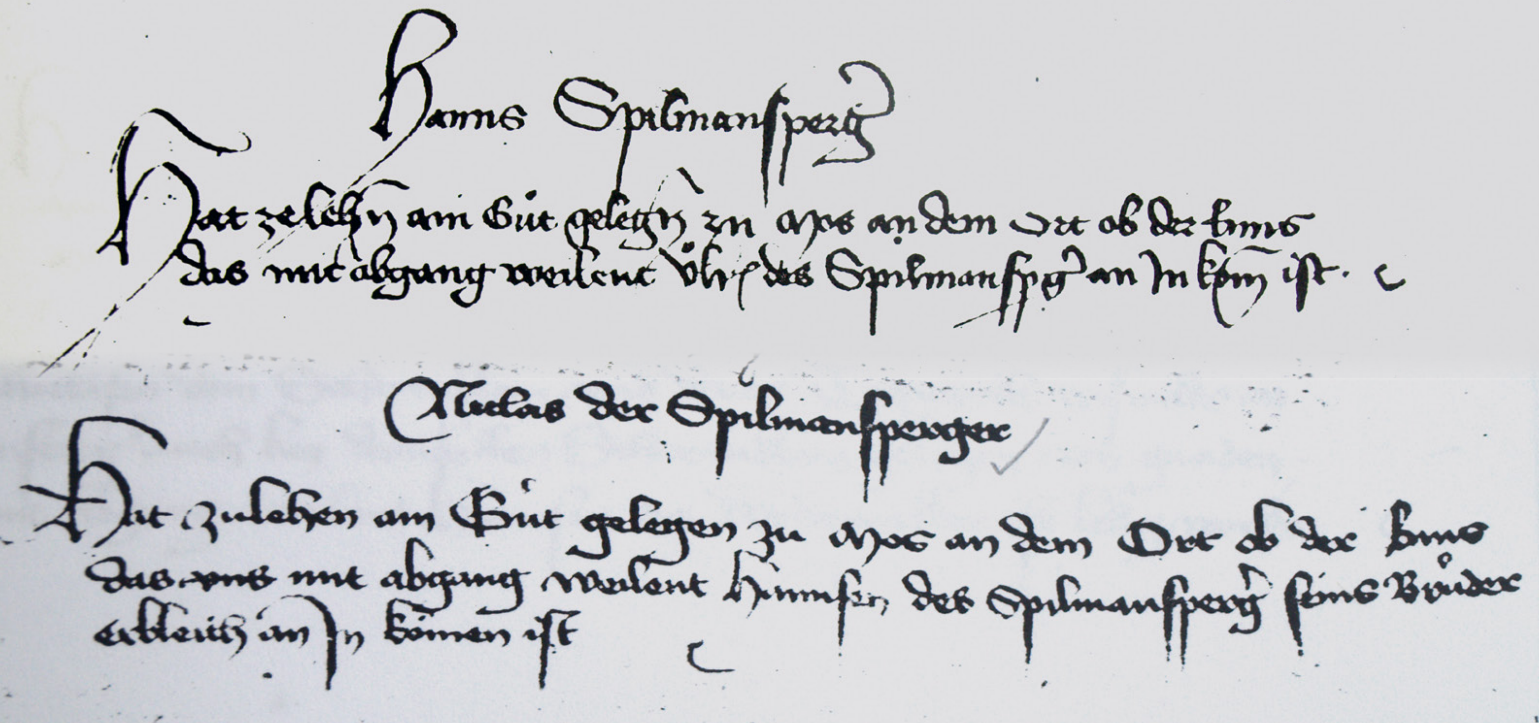 Hanns Spilmansperg̃
Hat zelehñ ain Gůt gelegñ zu Mos an dem Ort ob der
das mit abgang weilent Ůlr des Spilmanspg̃ an In kom̃ ist.
Niclas der Spilmansperger
Hat zulehen ain Gůt gelegen zu Mos an dem Ort ob der
das mit abgang weilent Hannsen des Spilmansperg̃ seins Brůder
erbleich an In komen ist